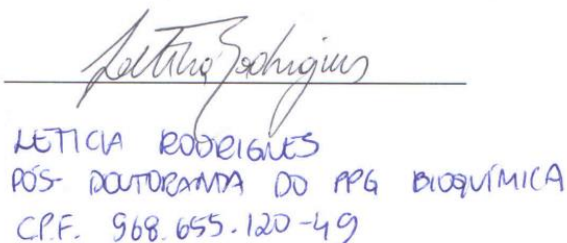 Letícia Rodrigues
LETICIA RODRIGUES
PÓS-DOUTORANDA DO PPG BIOQUÍMICA
C.P.F. 968.655.120-49